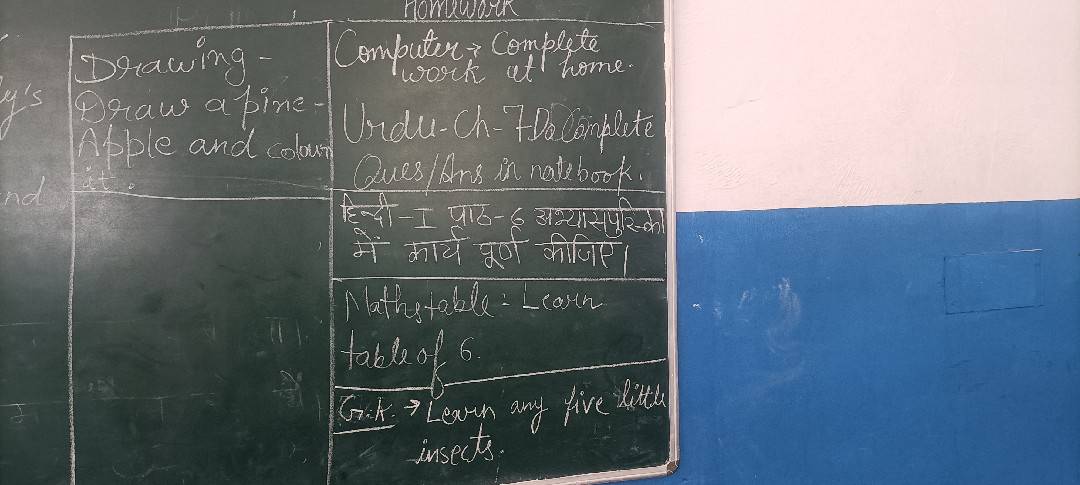 Homework
ly's
nd
Drawing -
Draw a pine -
Apple and colour
it.
Computer → Complete
work at home.
Urdu - Ch - 7 Do Complete
Ques/Ans in notebook.
हिन्दी - I पाठ - ६ अभ्यासपुस्तिका
में कार्य पूर्ण कीजिए।
Maths table : Learn
table of 6.
G.K. → Learn any five little
insects.